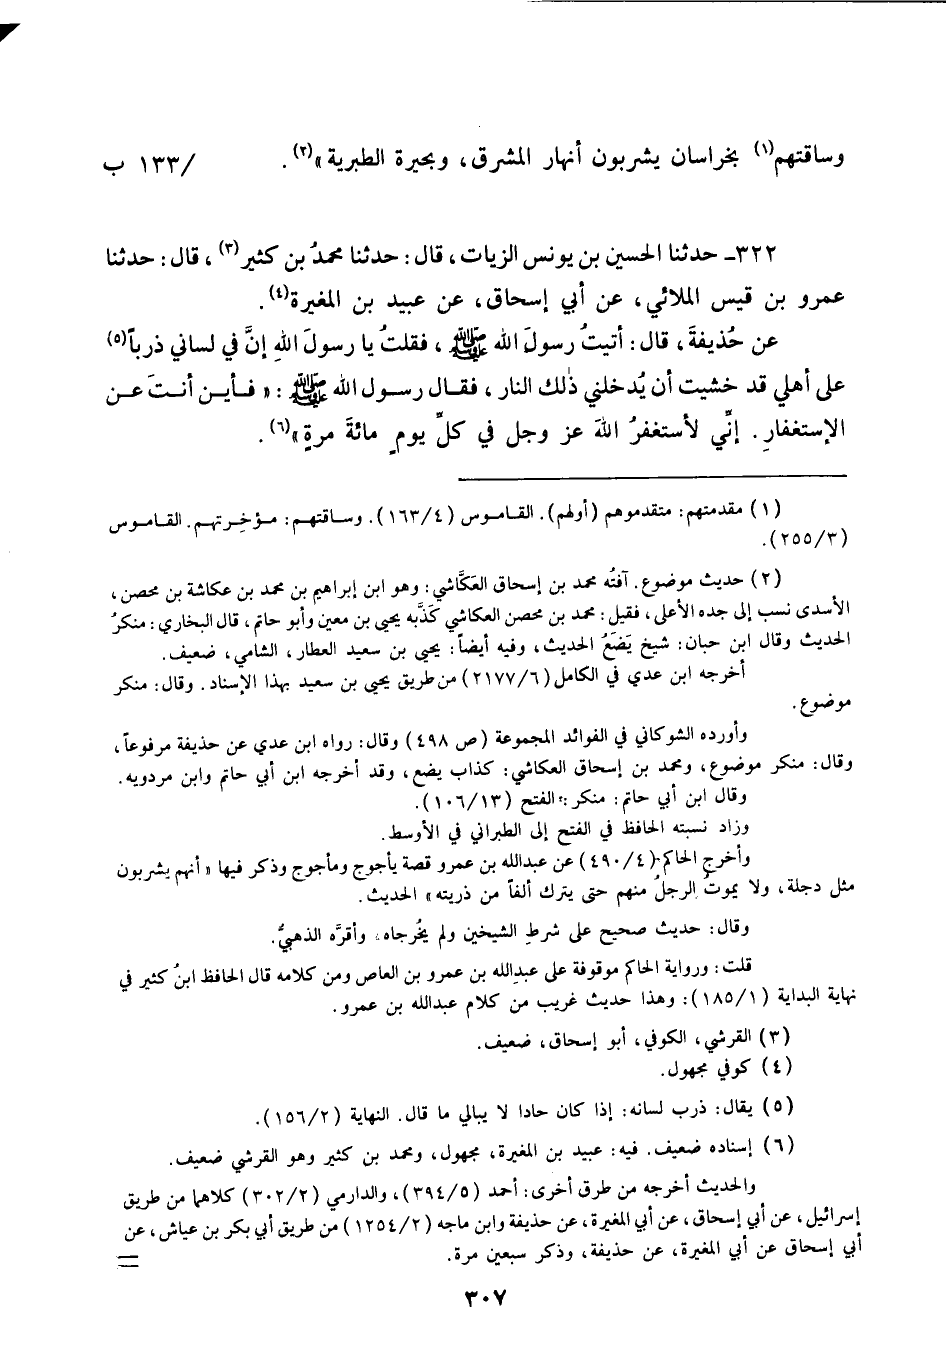 وساقتهم(١) بخراسان يشربون أنهار المشرق، وبحيرة الطبرية»(٢). /١٣٣ ب
٣٢٢ـ حدثنا الحسين بن يونس الزيات، قال: حدثنا محمدُ بن كثير(٣)، قال: حدثنا
عمرو بن قيس الملائي، عن أبي إسحاق، عن عبيد بن المغيرة(٤).
عن حُذيفةَ، قال: أتيتُ رسولَ الله ﷺ، فقلتُ يا رسولَ اللهِ إنَّ في لساني ذرباً(٥)
على أهلي قد خشيت أن يُدخلني ذٰلك النار، فقـال رسـول الله ﷺ: « فـأيـن أنـتَ عـن
الإستغفارِ. إنِّي لأستغفرُ اللهَ عز وجل في كلِّ يومٍ مائةَ مرةٍ»(٦).
(١) مقدمتهم: متقدموهم (أولهم). القاموس (١٦٣/٤). وساقتهم: مؤخرتهم. القاموس
(٢٥٥/٣).
(٢) حديث موضوع. آفتُه محمد بن إسحاق العَكَّاشي: وهو ابن إبراهيم بن محمد بن عكاشة بن محصن،
الأسدى نسب إلى جده الأعلى، فقيل: محمد بن محصن العكاشي كَذَّبه يحيى بن معين وأبو حاتم، قال البخاري: منكرُ
الحديث وقال ابن حبان: شيخ يَضَعُ الحديث، وفيه أيضاً: يحيى بن سعيد العطار، الشامي، ضعيف.
أخرجه ابن عدي في الكامل (٢١٧٧/٦) من طريق يحيى بن سعيد بهذا الإسناد. وقال: منكر
موضوع.
وأورده الشوكاني في الفوائد المجموعة (ص ٤٩٨) وقال: رواه ابن عدي عن حذيفة مرفوعاً،
وقال: منكر موضوع، ومحمد بن إسحاق العكاشي: كذاب يضع، وقد أخرجه ابن أبي حاتم وابن مردويه.
وقال ابن أبي حاتم: منكر: الفتح (١٠٦/١٣).
وزاد نسبته الحافظ في الفتح إلى الطبراني في الأوسط.
وأخرج الحاكم (٤٩٠/٤) عن عبدالله بن عمرو قصة يأجوج ومأجوج وذكر فيها «أنهم يشربون
مثل دجلة، ولا يموتُ الرجلُ منهم حتى يترك ألفاً من ذريته» الحديث.
وقال: حديث صحيح على شرطِ الشيخين ولم يخُرجاه، وأقرَّه الذهبيُّ.
قلت: ورواية الحاكم موقوفة على عبدالله بن عمرو بن العاص ومن كلامه قال الحافظ ابنُ كثير في
نهاية البداية (١٨٥/١): وهذا حديث غريب من كلام عبدالله بن عمرو.
(٣) القرشي، الكوفي، أبو إسحاق، ضعيف.
(٤) كوفي مجهول.
(٥) يقال: ذرب لسانه: إذا كان حادا لا يبالي ما قال. النهاية (١٥٦/٢).
(٦) إسناده ضعيف. فيه: عبيد بن المغيرة، مجهول، ومحمد بن كثير وهو القرشي ضعيف.
والحديث أخرجه من طرق أخرى: أحمد (٣٩٤/٥)، والدارمي (٣٠٢/٢) كلاهما من طريق
إسرائيل، عن أبي إسحاق، عن أبي المغيرة، عن حذيفة وابن ماجه (١٢٥٤/٢) من طريق أبي بكر بن عياش، عن
أبي إسحاق عن أبي المغيرة، عن حذيفة، وذكر سبعين مرة. =
٣٠٧